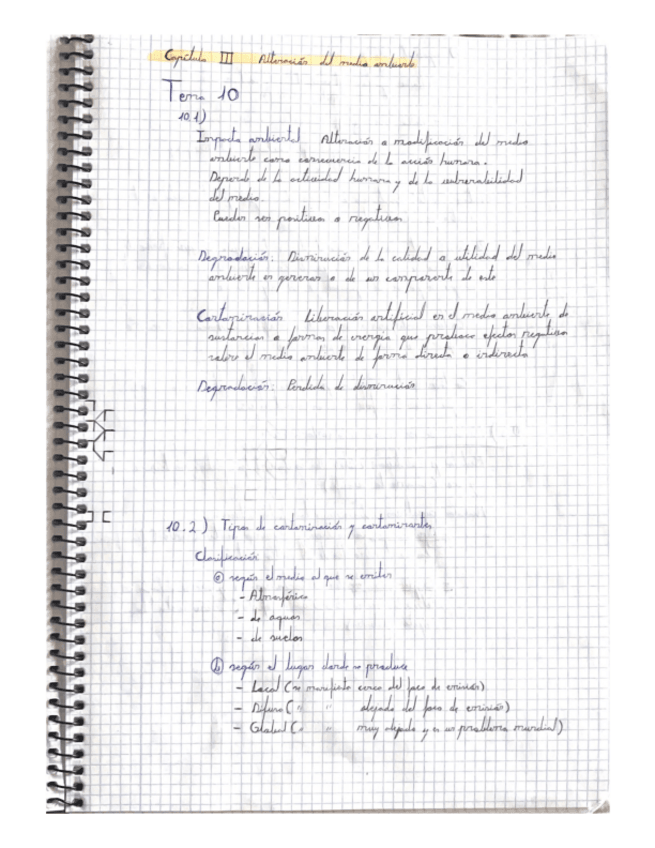 Capítulo III Alteración del medio ambiente
Tema 10
10.1)
Impacto ambiental Alteración o modificación del medio
ambiente como consecuencia de la acción humana.
Depende de la actividad humana y de la vulnerabilidad
del medio.
Pueden ser positivos o negativos
Degradación: Disminución de la calidad o utilidad del medio
ambiente en general o de un componente de este
Contaminación Liberación artificial en el medio ambiente de
sustancias o formas de energía que produce efectos negativos
sobre el medio ambiente de forma directa o indirecta
Degradación: Perdida de disminución
10.2) Tipos de contaminación y contaminantes
Clasificación
a) según el medio al que se emiten
- Atmosférica
- de aguas
- de suelos
b) según el lugar donde se produce
- Local (se manifiesta cerca del foco de emisión)
- Difusa (" " alejada del foco de emisión)
- Global (" " muy alejada y es un problema mundial)